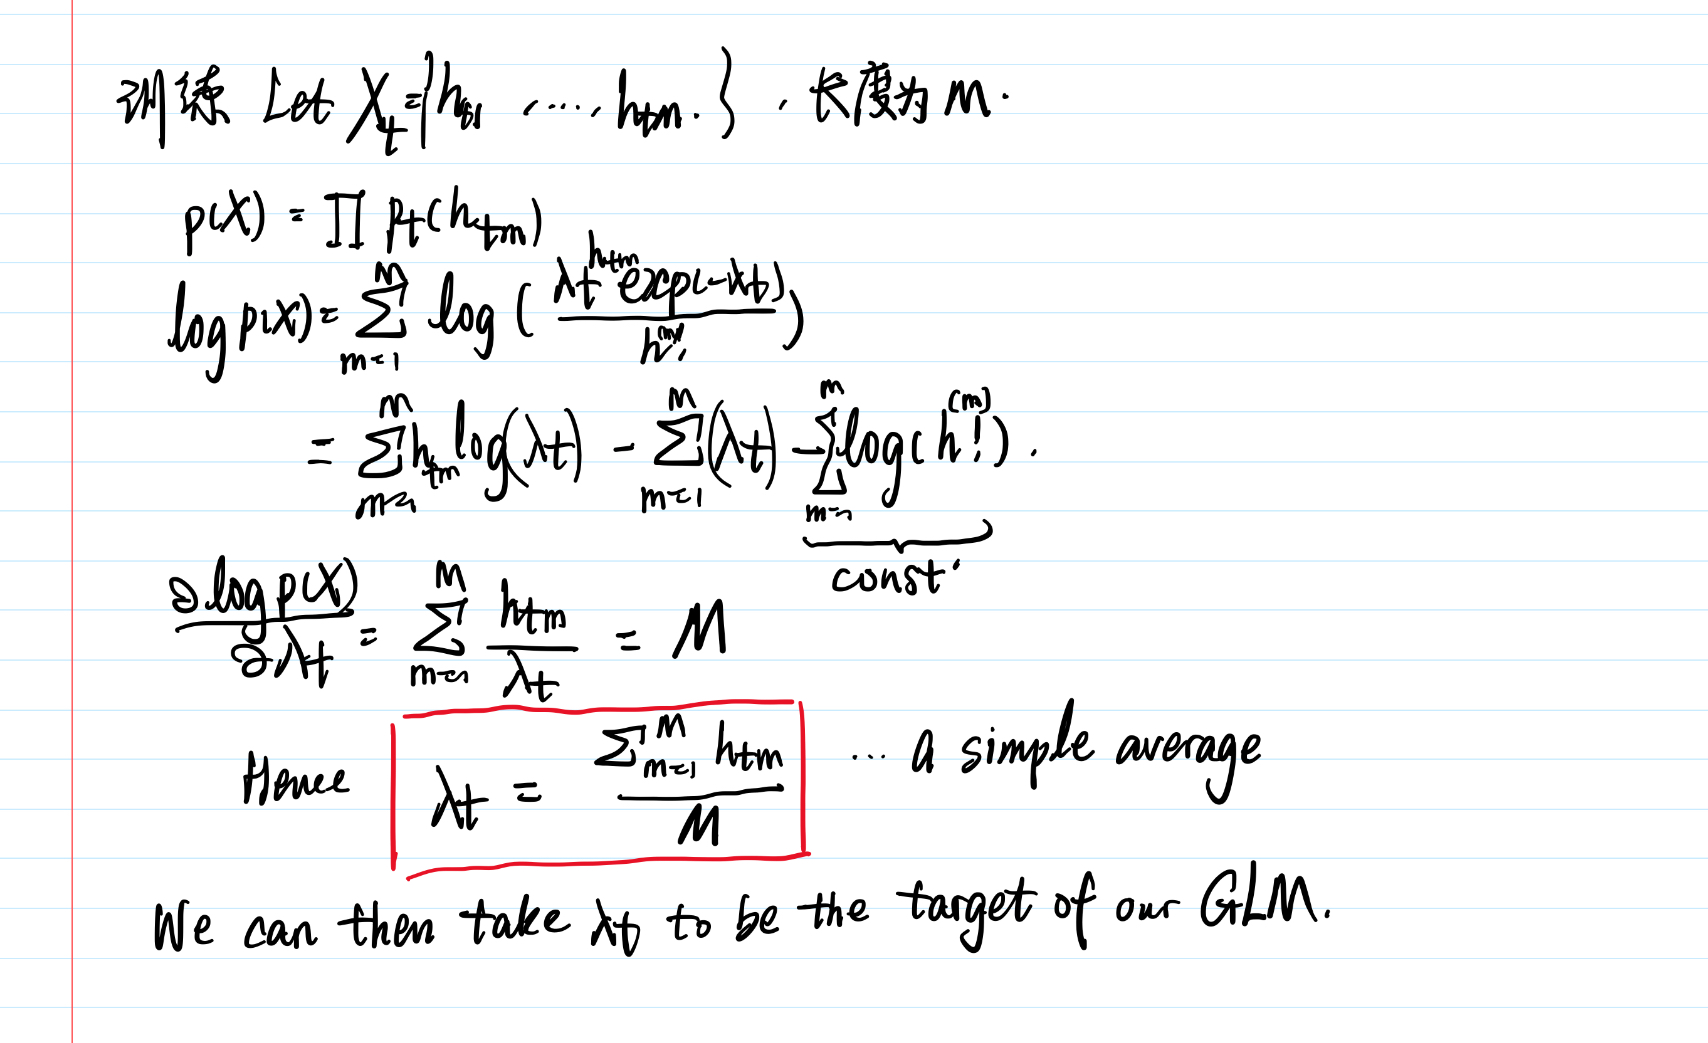 训练 Let X_t = {h_{t1}, ...., h_{tm}.}, 长度为 m.
p(X) = ∏ p_t(h_{tm})
log p(X) = ∑_{m=1}^{M} log ( λ_t^{h_{tm}} exp(-λ_t) / h^{(m)}! )
= ∑_{m=1}^{M} h_{tm} log(λ_t) - ∑_{m=1}^{M} (λ_t) - ∑_{m=1}^{m} log(h^{(m)}!).
const.
∂ log p(X) / ∂λ_t = ∑_{m=1}^{M} h_{tm} / λ_t = M
Hence λ_t = ∑_{m=1}^{M} h_{tm} / M ... a simple average
We can then take λ_t to be the target of our GLM.